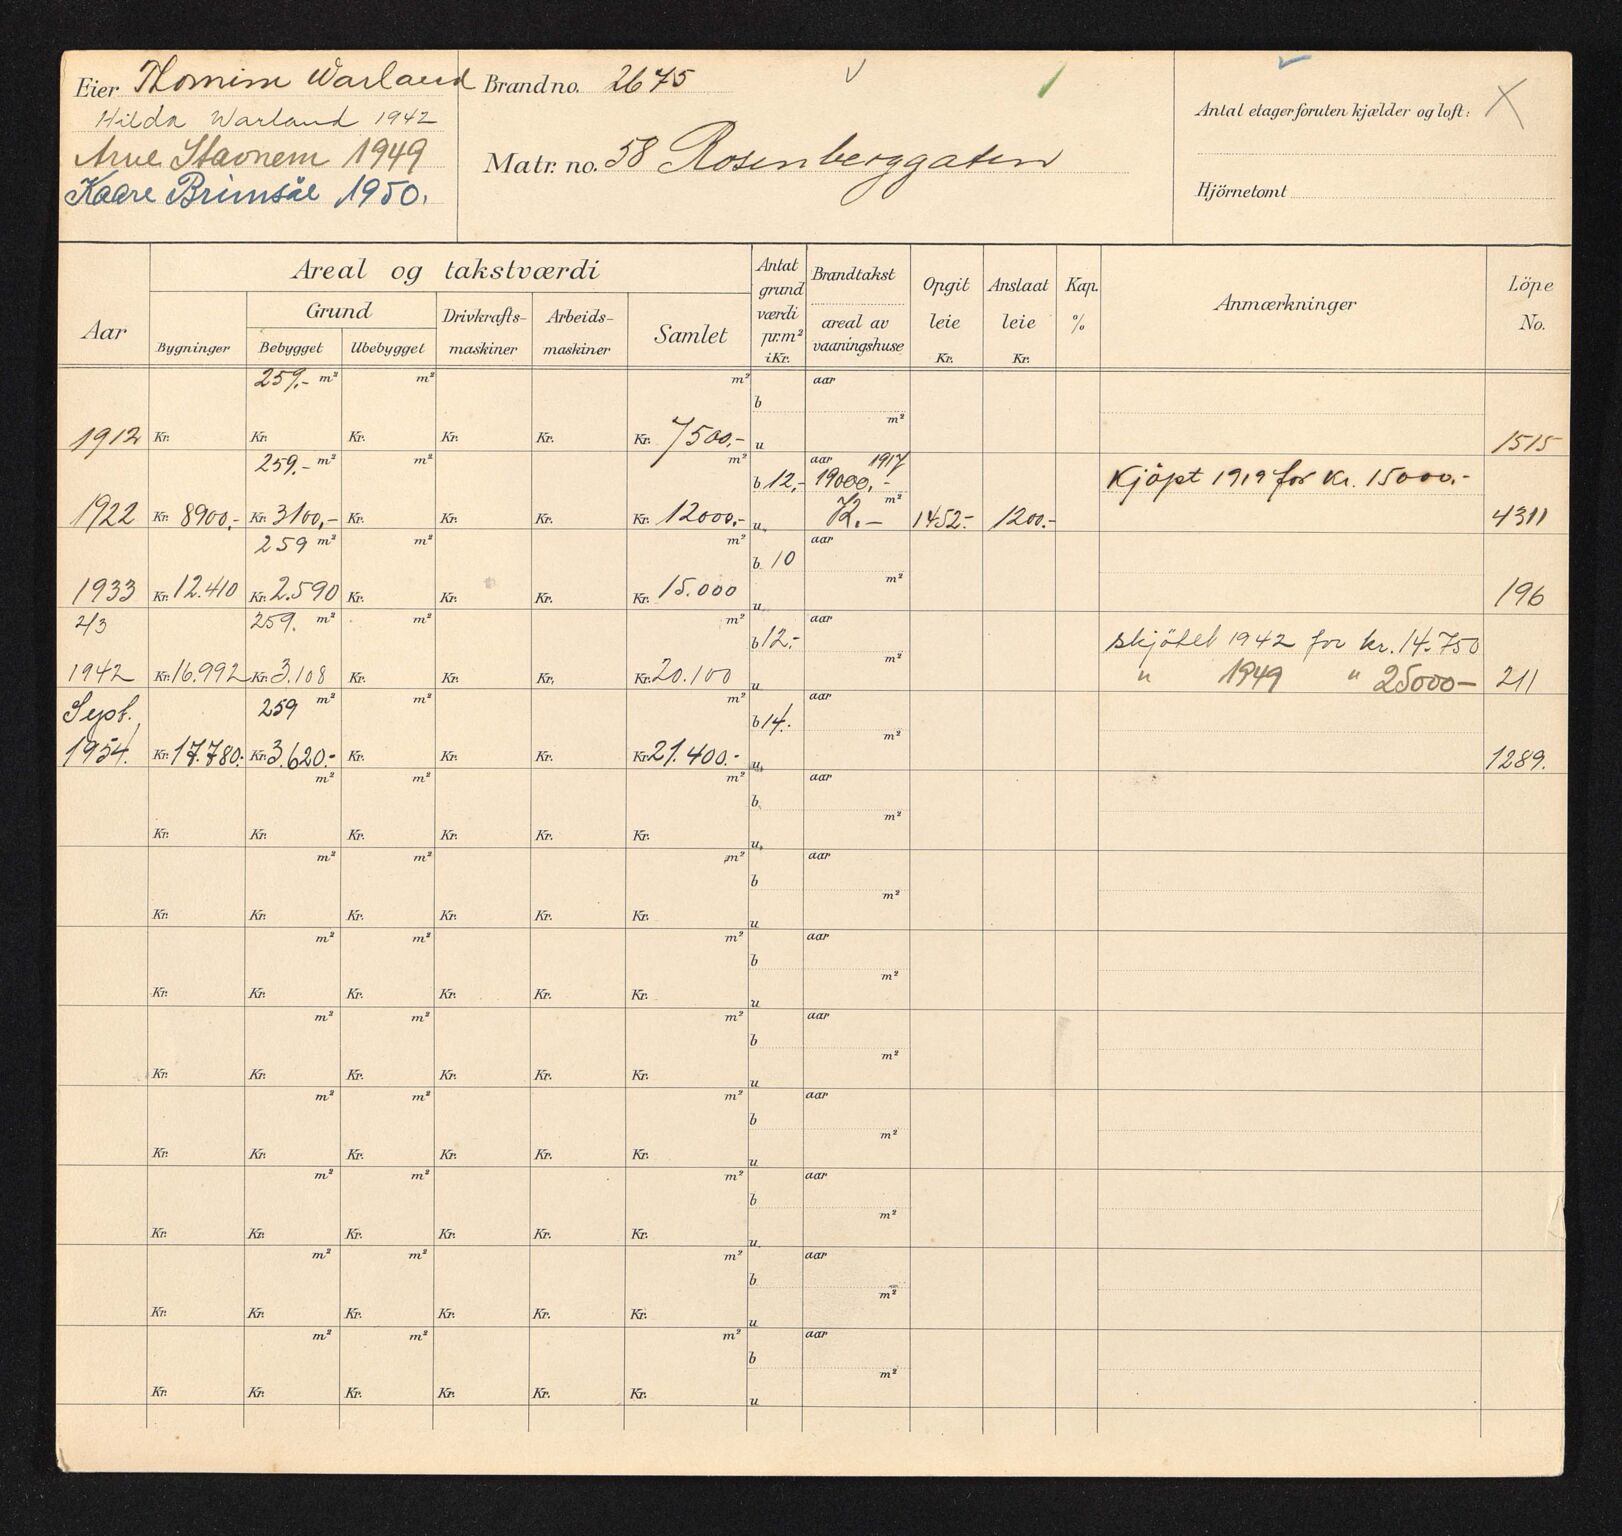 Eier Thomine Warland
Hilda Warland 1942
Arne Stavnem 1949
Kaare Brimsöe 1950.
Brand no. 2675
Matr. no. 58 Rosenberggaten
Antal etager foruten kjælder og loft: X
Hjörnetomt
Aar
Areal og takstværdi
Bygninger
Grund
Bebygget Ubebygget
Drivkrafts-maskiner
Arbeids-maskiner
Samlet
Antat grund værdi pr. m² i Kr.
Brandtakst
areal av vaaningshuse
Opgit leie Kr.
Anslaat leie Kr.
Kap. %
Anmærkninger
Löpe No.
259.- m² m² m² b aar m²
1912 Kr. Kr. Kr. Kr. Kr. Kr. 7500,- u 1515
259.- m² m² m² b 12,- aar 1917 19000,- m² Kjöpt 1919 for Kr. 15000.-
1922 Kr. 8900,- Kr. 3100,- Kr. Kr. Kr. Kr. 12000,- u 72.- 1452- 1200.- 4311
259 m² m² m² b 10 aar m²
1933 Kr. 12.410 Kr. 2.590 Kr. Kr. Kr. Kr. 15.000 u 196
2/3 259. m² m² m² b 12.- aar m² skjötet 1942 for kr. 14.750
1942 Kr. 16.992 Kr. 3.108 Kr. Kr. Kr. Kr. 20.100 u " 1949 " 25000- 211
Sept. 259 m² m² m² b 14.- aar m²
1954. Kr. 17.780.- Kr. 3.620.- Kr. Kr. Kr. Kr. 21.400.- u 1289.
m² m² m² b aar m²
Kr. Kr. Kr. Kr. Kr. Kr. u
m² m² m² b aar m²
Kr. Kr. Kr. Kr. Kr. Kr. u
m² m² m² b aar m²
Kr. Kr. Kr. Kr. Kr. Kr. u
m² m² m² b aar m²
Kr. Kr. Kr. Kr. Kr. Kr. u
m² m² m² b aar m²
Kr. Kr. Kr. Kr. Kr. Kr. u
m² m² m² b aar m²
Kr. Kr. Kr. Kr. Kr. Kr. u
m² m² m² b aar m²
Kr. Kr. Kr. Kr. Kr. Kr. u
m² m² m² b aar m²
Kr. Kr. Kr. Kr. Kr. Kr. u